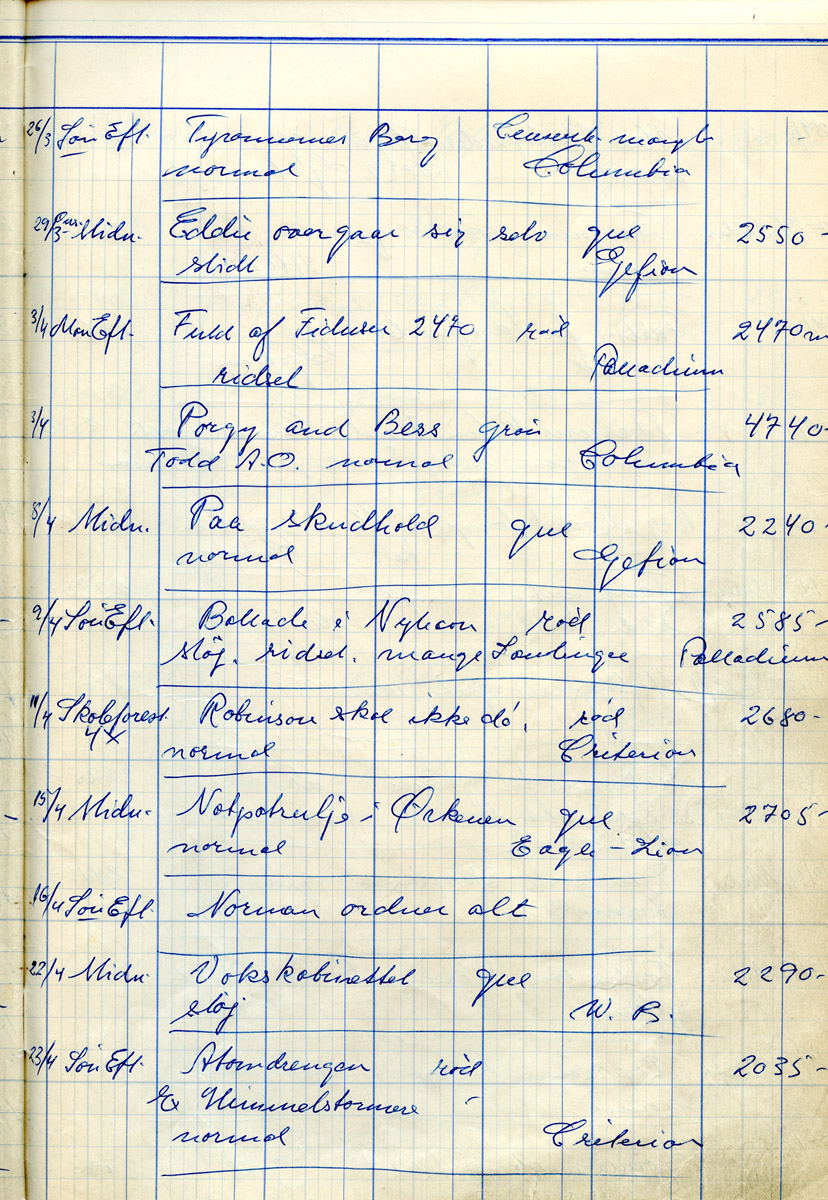 26/3 Søn Eft. Tyrannernes Borg Censurk. mangl.
normal Columbia
29/3 Midn. Eddie overgaar sig selv gul 2550 -
slidt Gefion
3/4 Man Eft. Fuld af Fiduser 2470 rød 2470 m
ridset Palladium
3/4 Porgy and Bess grøn 4740 -
Todd A.O. normal Columbia
8/4 Midn. Paa skudhold gul 2240 -
normal Gefion
9/4 Søn Eft. Ballade i Nyhavn rød 2585 -
støj. ridset. mange Samlinger Palladium
11/4 Skoleforest. Robinson skal ikke dø. rød 2680 -
4x normal Criterion
15/4 Midn. Natpatrulje i Ørkenen gul 2705 -
normal Eagle - Lion
16/4 Søn Eft. Norman ordner alt
22/4 Midn. Vokskabinettet gul 2290 -
støj W. B.
23/4 Søn Eft. Atomdrengen rød 2035 -
Ex Himmelstormere -
normal Criterion